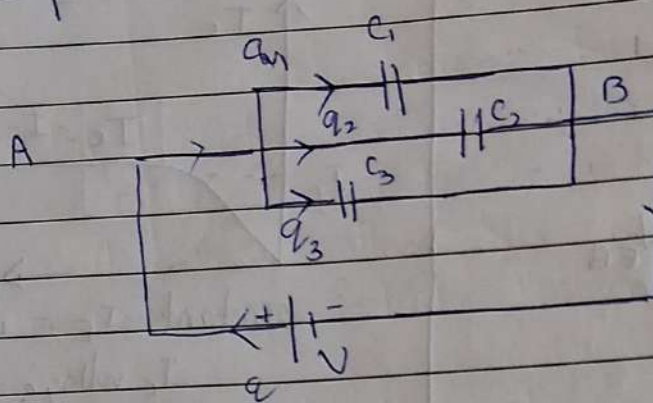 q1 C1
B
q2 C2
A
C3
q3
+ -
V
q